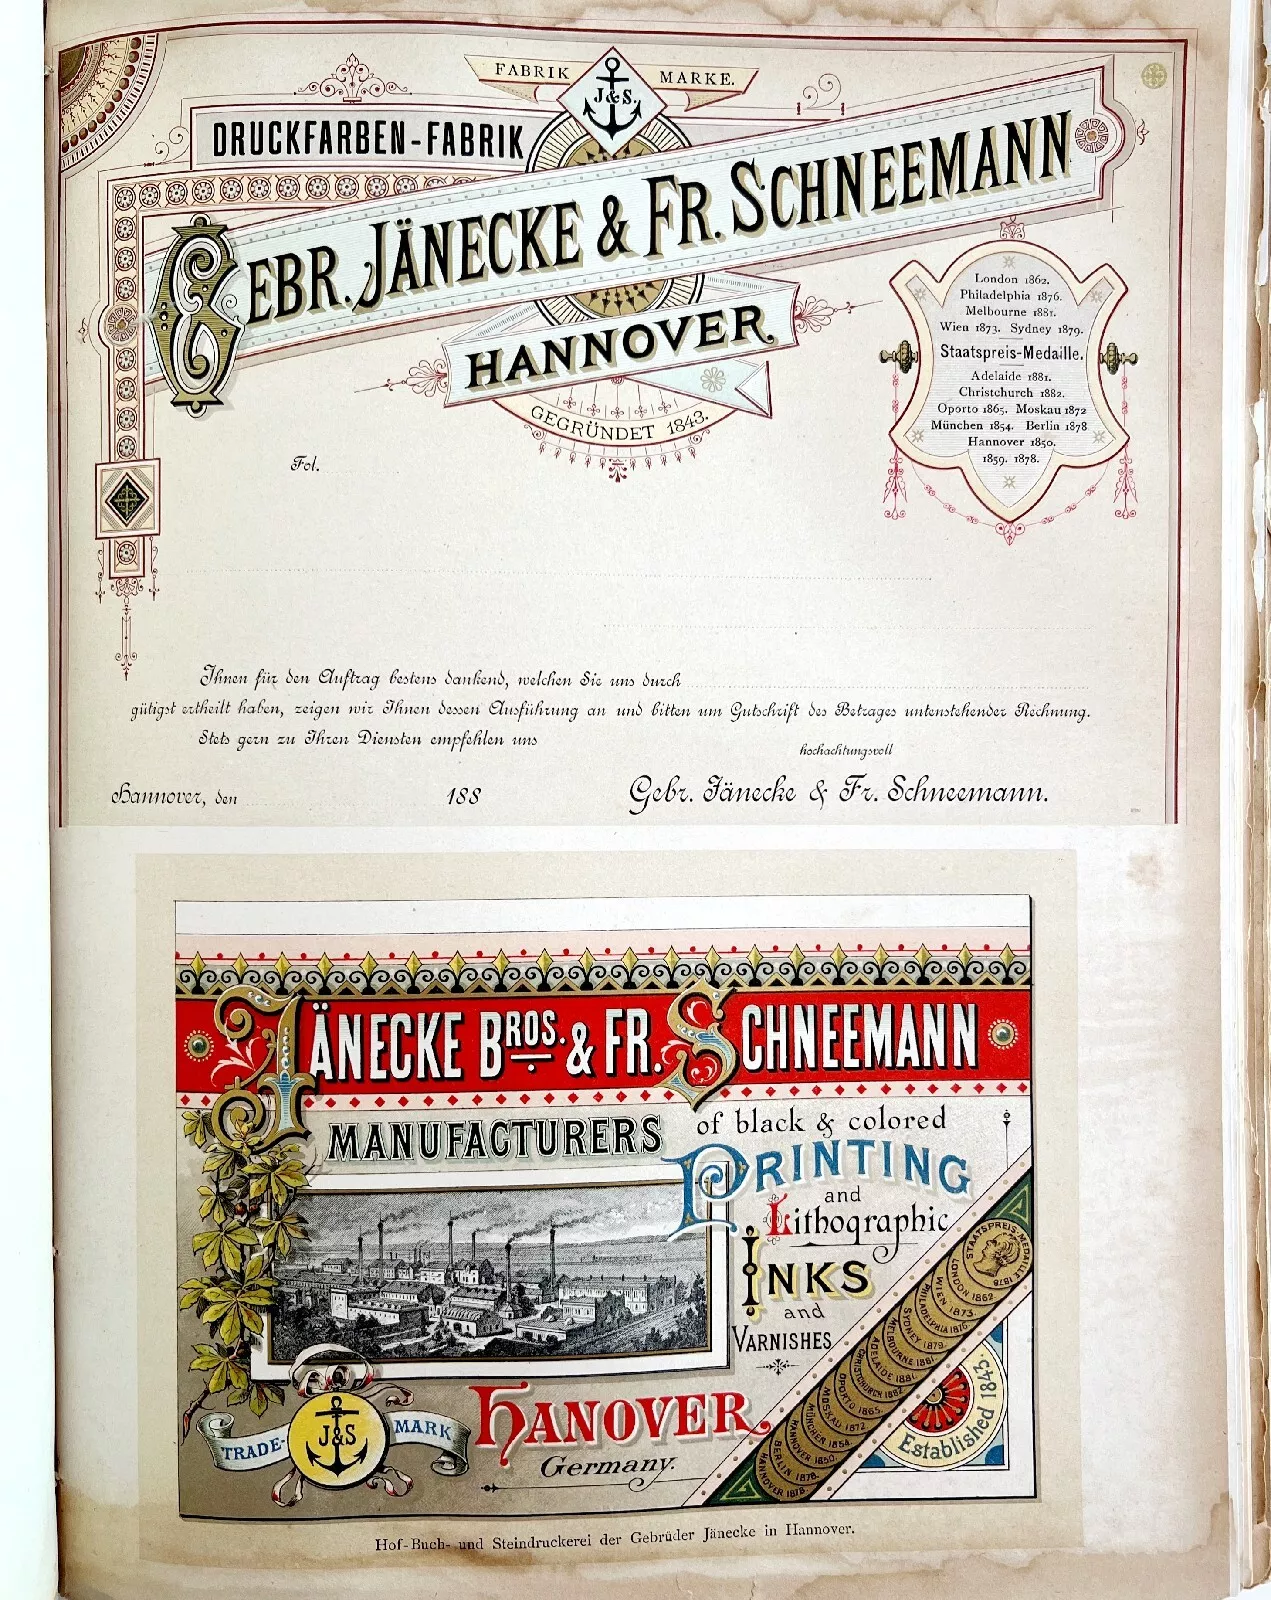 FABRIK MARKE.
J&S.
DRUCKFARBEN-FABRIK
GEBR. JÄNECKE & FR. SCHNEEMANN
HANNOVER.
GEGRÜNDET 1843.
London 1862.
Philadelphia 1876.
Melbourne 1881.
Wien 1873. Sydney 1879.
Staatspreis-Medaille.
Adelaide 1881.
Christchurch 1882.
Oporto 1865. Moskau 1872
München 1854. Berlin 1878
Hannover 1850.
1859. 1878.
Fol.
Ihnen für den Auftrag bestens dankend, welchen Sie uns durch
gütigst ertheilt haben, zeigen wir Ihnen dessen Ausführung an und bitten um Gutschrift des Betrages untenstehender Rechnung.
Stets gern zu Ihren Diensten empfehlen uns
hochachtungsvoll
Hannover, den 188
Gebr. Jänecke & Fr. Schneemann.
JÄNECKE BROS. & FR. SCHNEEMANN
MANUFACTURERS of black & colored
PRINTING
and
Lithographic
INKS
and
VARNISHES
STAATSPREIS-MEDAILLE 1878
LONDON 1862
WIEN 1873.
PHILADELPHIA 1876.
SYDNEY 1879.
MELBOURNE 1881.
ADELAIDE 1881.
CHRISTCHURCH 1882.
OPORTO 1865.
MOSKAU 1872
MÜNCHEN 1854.
HANNOVER 1850.
BERLIN 1878.
HANNOVER 1878.
Established 1843.
HANOVER.
Germany.
TRADE- MARK
J&S
Hof-Buch- und Steindruckerei der Gebrüder Jänecke in Hannover.